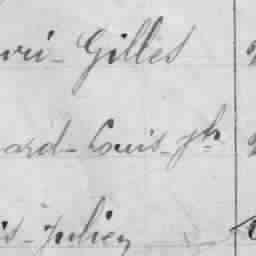 vri - Gilles
ard - Louis - Jh
is - Julien